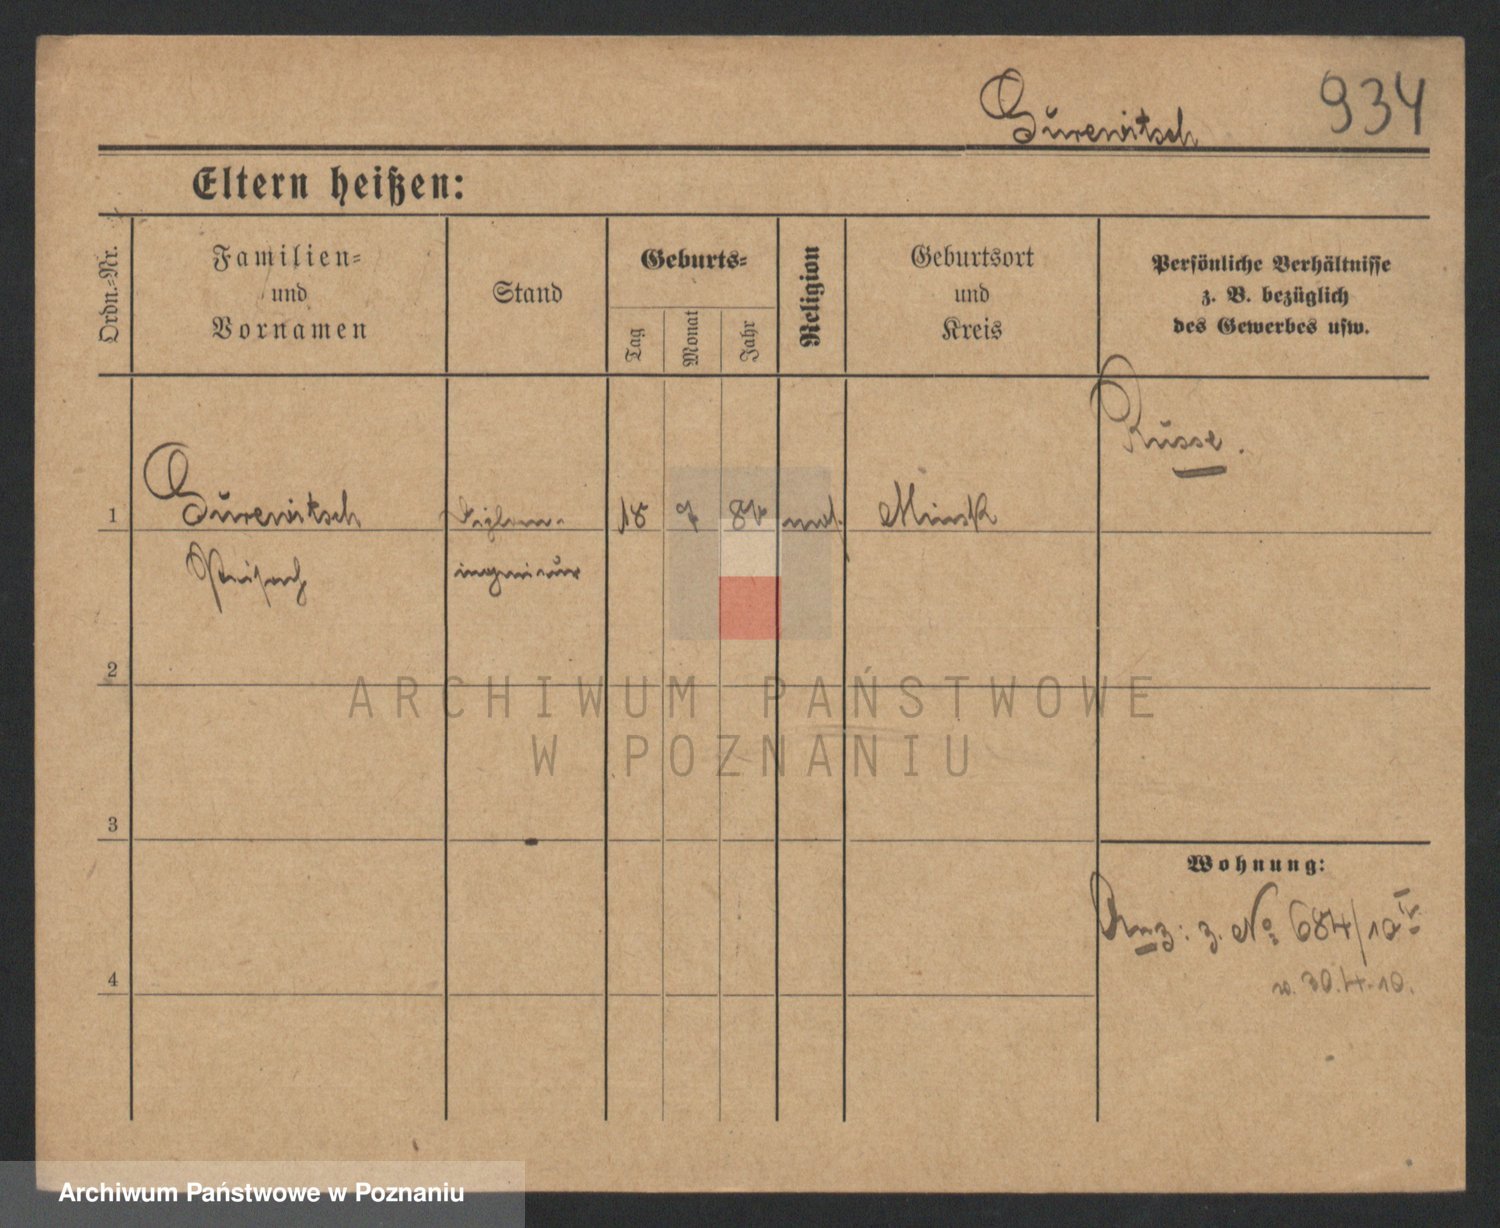 Gurewitsch 934
Eltern heißen:
Ordn.-Nr.
Familien- und Vornamen
Stand
Geburts-
Tag
Monat
Jahr
Religion
Geburtsort und Kreis
Persönliche Verhältnisse z. B. bezüglich des Gewerbes usw.
Russe.
1 Gurewitsch Diplom- 18 7 mos. Minsk
ingenieur
2
3
Wohnung:
Anz: z. No 684/10 IV
v. 30.4.10.
4
ARCHIWUM PAŃSTWOWE
W POZNANIU
Archiwum Państwowe w Poznaniu